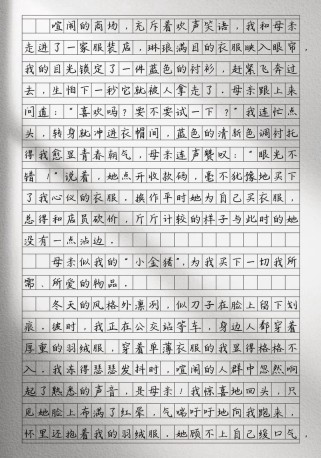 喧闹的商场，充斥着欢声笑语，我和母亲
走进了一家服装店，琳琅满目的衣服映入眼帘，
我的目光锁定了一件蓝色的衬衫，赶紧飞奔过
去，生怕下一秒它就被人拿走了。母亲跟上来
问道：“喜欢吗？要不要试一下？”我连忙点
头，转身就冲进衣帽间，蓝色的清新色调衬托
得我愈显青春朝气，母亲连声赞叹：“眼光不
错！”说着，她点开收款码，毫不犹豫地买下
了我心仪的衣服。换作平时她为自己买衣服，
总得和店员砍价，斤斤计较的样子与此时的她
没有一点沾边。
母亲似我的“小金猪”，为我买下一切我所
需，所爱的物品。
冬天的风格外凛冽，似刀子在脸上留下划
痕。彼时，我正在公交站等车，身边人都穿着
厚重的羽绒服，穿着单薄衣服的我显得格格不
入，我冻得瑟瑟发抖时，喧闹的人群中忽然响
起了熟悉的声音，是母亲！我惊喜地回头，只
见她脸上布满了红晕，气喘吁吁地向我跑来，
怀里还抱着我的羽绒服。她顾不上自己缓口气，